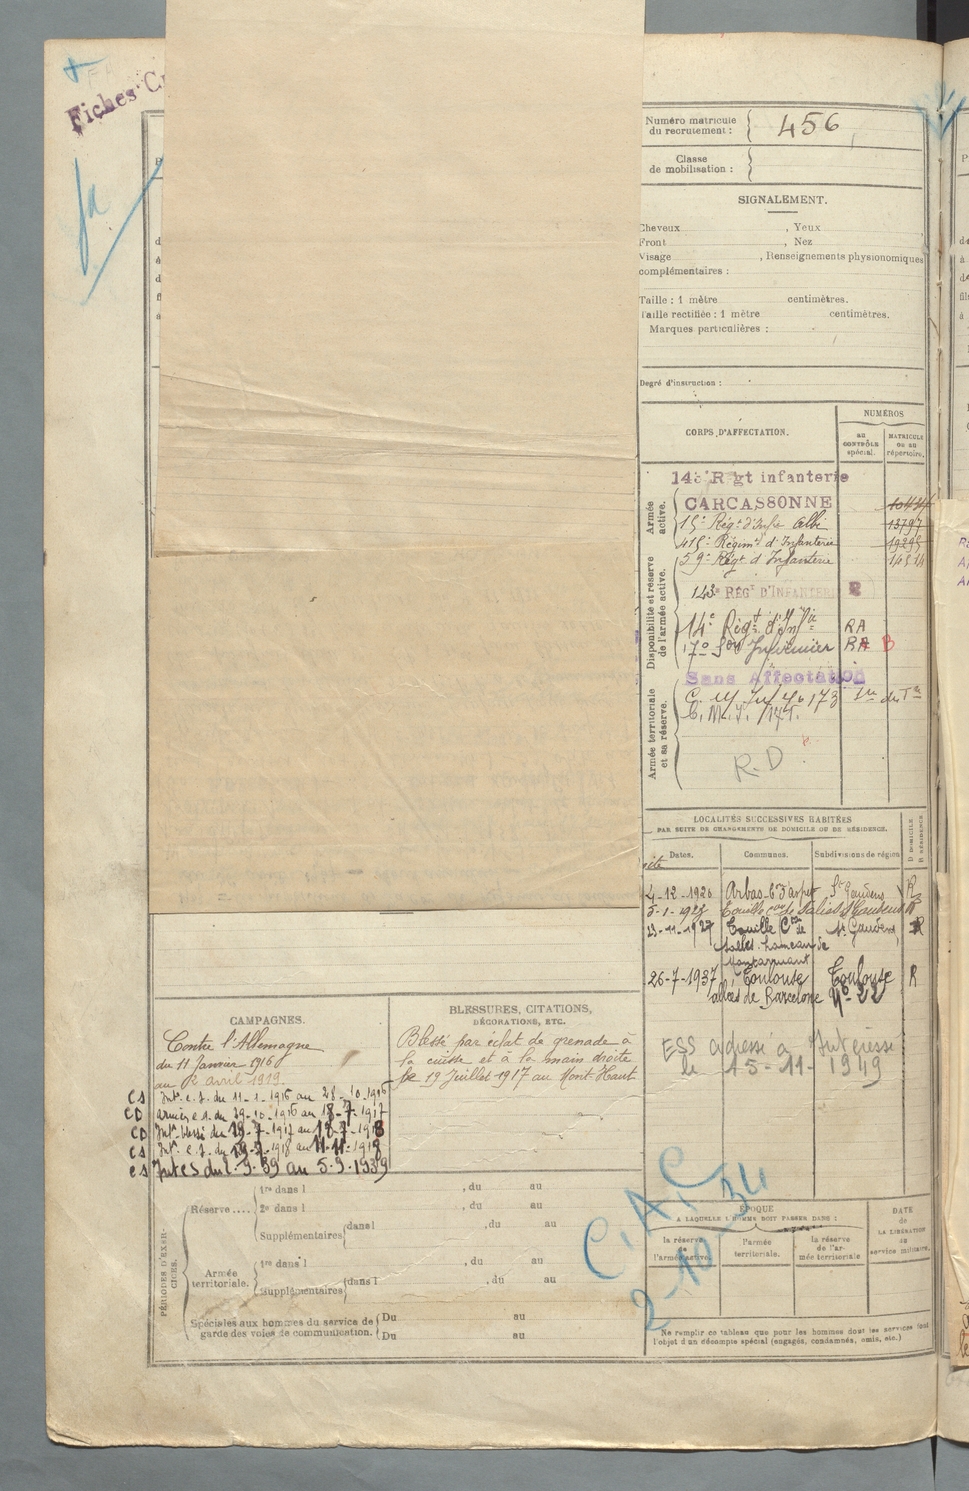 Fiches
Numéro matricule
du recrutement :
456
Classe
de mobilisation :
SIGNALEMENT.
Cheveux , Yeux
Front , Nez
Visage , Renseignements physionomiques
complémentaires :
Taille : 1 mètre centimètres.
Taille rectifiée : 1 mètre centimètres.
Marques particulières :
Degré d'instruction :
CORPS D'AFFECTATION.
NUMÉROS
au
CONTRÔLE
spécial.
MATRICULE
ou au
répertoire.
Armée
active.
Rgt infanterie
CARCASSONNE
15e Régt d'Infie Albi
415e Régimt d'Infanterie
59e Régt d'Infanterie
Disponibilité et réserve
de l'armée active.
143e RÉGT D'INFANTERIE
14e Régt d'Infie RA
17e Son Infirmier RA B
Sans Affectation
Armée territoriale
et sa réserve.
R.D
LOCALITÉS SUCCESSIVES HABITÉES
PAR SUITE DE CHANGEMENTS DE DOMICILE OU DE RÉSIDENCE.
D DOMICILE
R RÉSIDENCE.
Dates. Communes. Subdivisions de région
4-12-1920 Arbas St Gaudens R
23-11-1927 Touille Con de St Gaudens R
Salies hameau de
26-7-1937 Toulouse Toulouse R
allées de Barcelone No 22
ESS adressé à Intéressé
le 15-11-1949
CAMPAGNES.
Contre l'Allemagne
du 11 Janvier 1916
au 12 avril 1919.
CS Intr c. s. du 11-1-1916 au 28-10-1916
CD armées e. s. du 29-10-1916 au 18-7-1917
CD Intr blessé du 19-7-1917 au 18-7-1918
CS Intr c. s. du 19-7-1918 au 11-11-1918
BLESSURES, CITATIONS,
DÉCORATIONS, ETC.
Blessé par éclat de grenade à
la cuisse et à la main droite
le 19 Juillet 1917 au Mont-Haut
C.A.C
2-10-34
PÉRIODES D'EXER-
CICES.
Réserve ....
1re dans l , du au
2e dans l , du au
Supplémentaires
dans l , du au
Armée
territoriale.
1re dans l , du au
Supplémentaires
dans l , du au
Spéciales aux hommes du service de
garde des voies de communication.
Du au
Du au
ÉPOQUE
A LAQUELLE L'HOMME DOIT PASSER DANS :
la réserve
de
l'armée active.
l'armée
territoriale.
la réserve
de l'ar-
mée territoriale
DATE
de
LA LIBÉRATION
du
service militaire.
Ne remplir ce tableau que pour les hommes dont les services font
l'objet d'un décompte spécial (engagés, condamnés, omis, etc.)